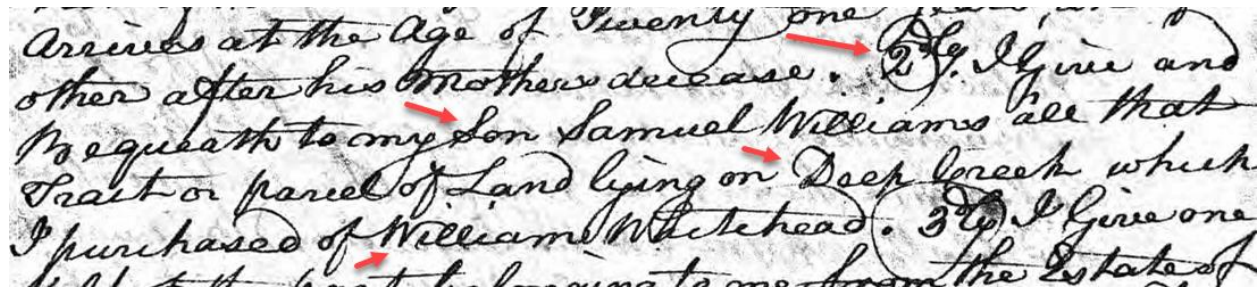 Arrives at the Age of Twenty one
other after his Mothers decease. 2dly. I Give and
Bequeath to my Son Samuel Williams all that
Tract or parcel of Land lying on Deep Creek which
I purchased of William Whitehead. 3dly I Give one
part belonging to me from the Estate of